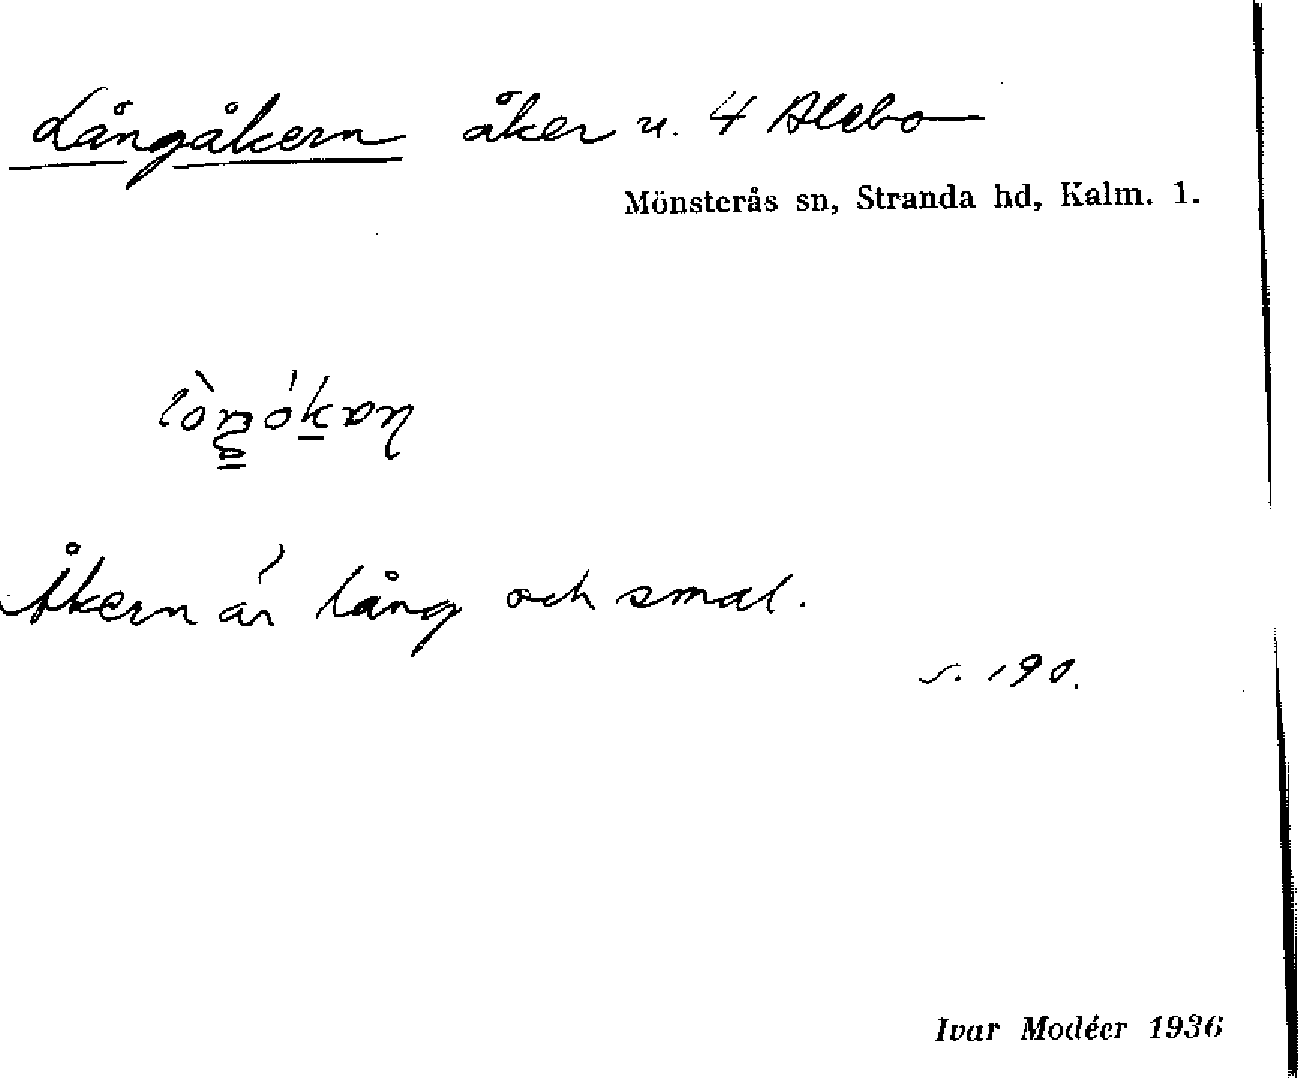 Långåkern åker u. 4 Alebo
Mönsterås sn, Stranda hd, Kalm. l.
Åkern är lång och smal.
s. 190.
Ivar Modéer 1936